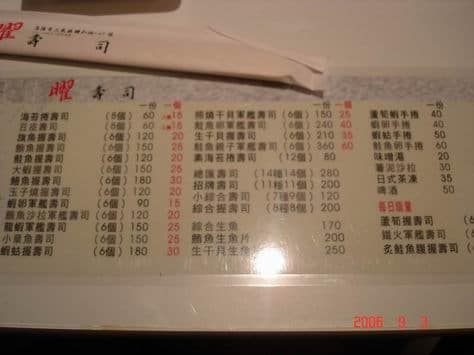 曜 壽 司
曜 壽 司
一份 一個
海苔捲壽司 (6個) 60
豆皮壽司 (5個) 60
旗魚握壽司 (6個) 150 25
鮪魚握壽司 (6個) 150 25
鮭魚握壽司 (6個) 150 25
大蝦握壽司 (6個) 150 25
鰻魚握壽司 (6個) 180 30
玉子燒握壽司 (6個)
蝦卵軍艦壽司 (6個) 90 15
鮪魚沙拉軍艦壽司 (6個) 120 20
龍蝦軍艦壽司 (6個) 150 25
小章魚壽司 (6個) 150 25
蝦蛄握壽司 (6個) 180 30
一份 一個
燒干貝軍艦壽司 (6個) 150 25
鮭魚卵軍艦壽司 (6個) 240 40
生干貝握壽司 (6個) 210 35
鮭魚親子軍艦壽司 (6個) 360 60
素海苔捲壽司 (12個) 80
總匯壽司 (14種14個) 280
招牌壽司 (11種11個) 200
小綜合壽司 (7種9個) 120
綜合握壽司 (8種8個) 200
綜合生魚 170
鮪魚生魚片 200
生干貝生魚 250
一份
蘆筍蝦手捲 40
蝦卵手捲 40
蝦蛄手捲 50
鮭魚卵手捲 60
味噌湯 20
薯泥沙拉 30
日式茶凍 35
啤酒 50
每日限量
蘆筍握壽司 (6個)
鐵火軍艦壽司 (6個)
炙鮭魚腹握壽司 (6個)
2006 9 3